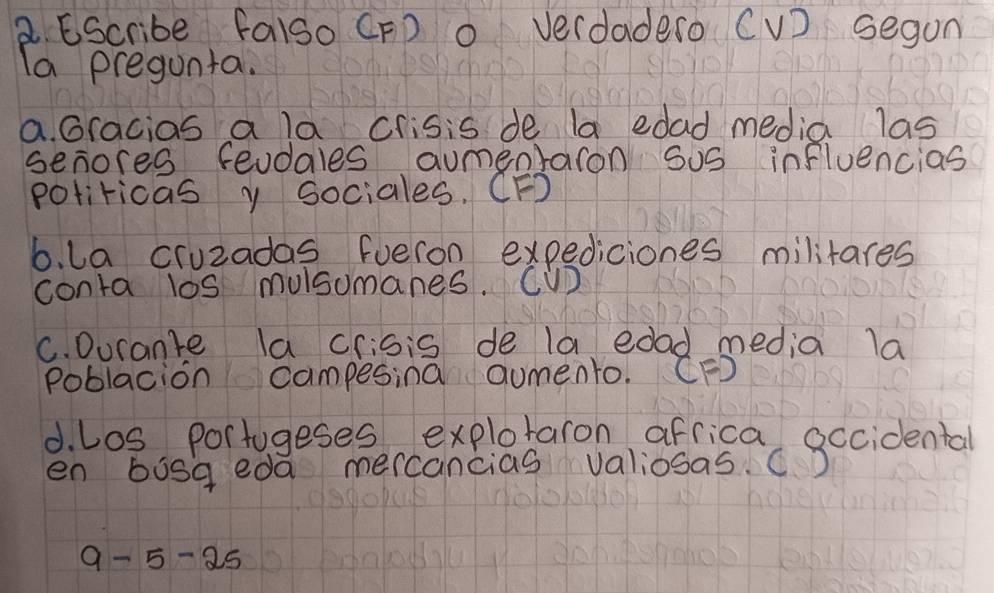 2. Escribe falso (F) o verdadero (V) segun
la pregunta.
a. Gracias a la crisis de la edad media las
señores feudales aumentaron sus influencias
potiticas y sociales. (F)
b. La cruzadas fueron expediciones militares
conta los mulsumanes. (V)
c. Durante la crisis de la edad media la
población campesina aumento. (F)
d. Los portugeses explotaron africa occidental
en búsq eda mercancias valiosas. ( )
9-5-25